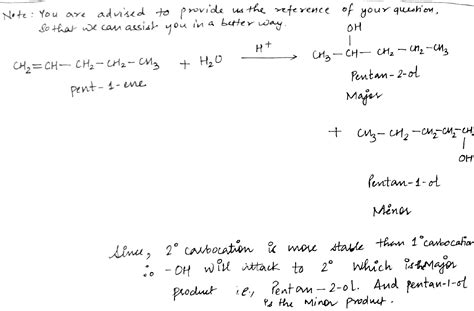 Note: You are advised to provide us the reference of your question,
So that we can assist you in a better way.
OH
CH2=CH-CH2-CH2-CH3 + H2O H+ CH3-CH-CH2-CH2-CH3
pent-1-ene
Pentan-2-ol
Major
+ CH3-CH2-CH2-CH2-CH2
OH
Pentan-1-ol
Minor
Since, 2° carbocation is more stable than 1° carbocation
∴ -OH will attack to 2° which is Major
product i.e., Pentan-2-ol. And pentan-1-ol
is the Minor product.